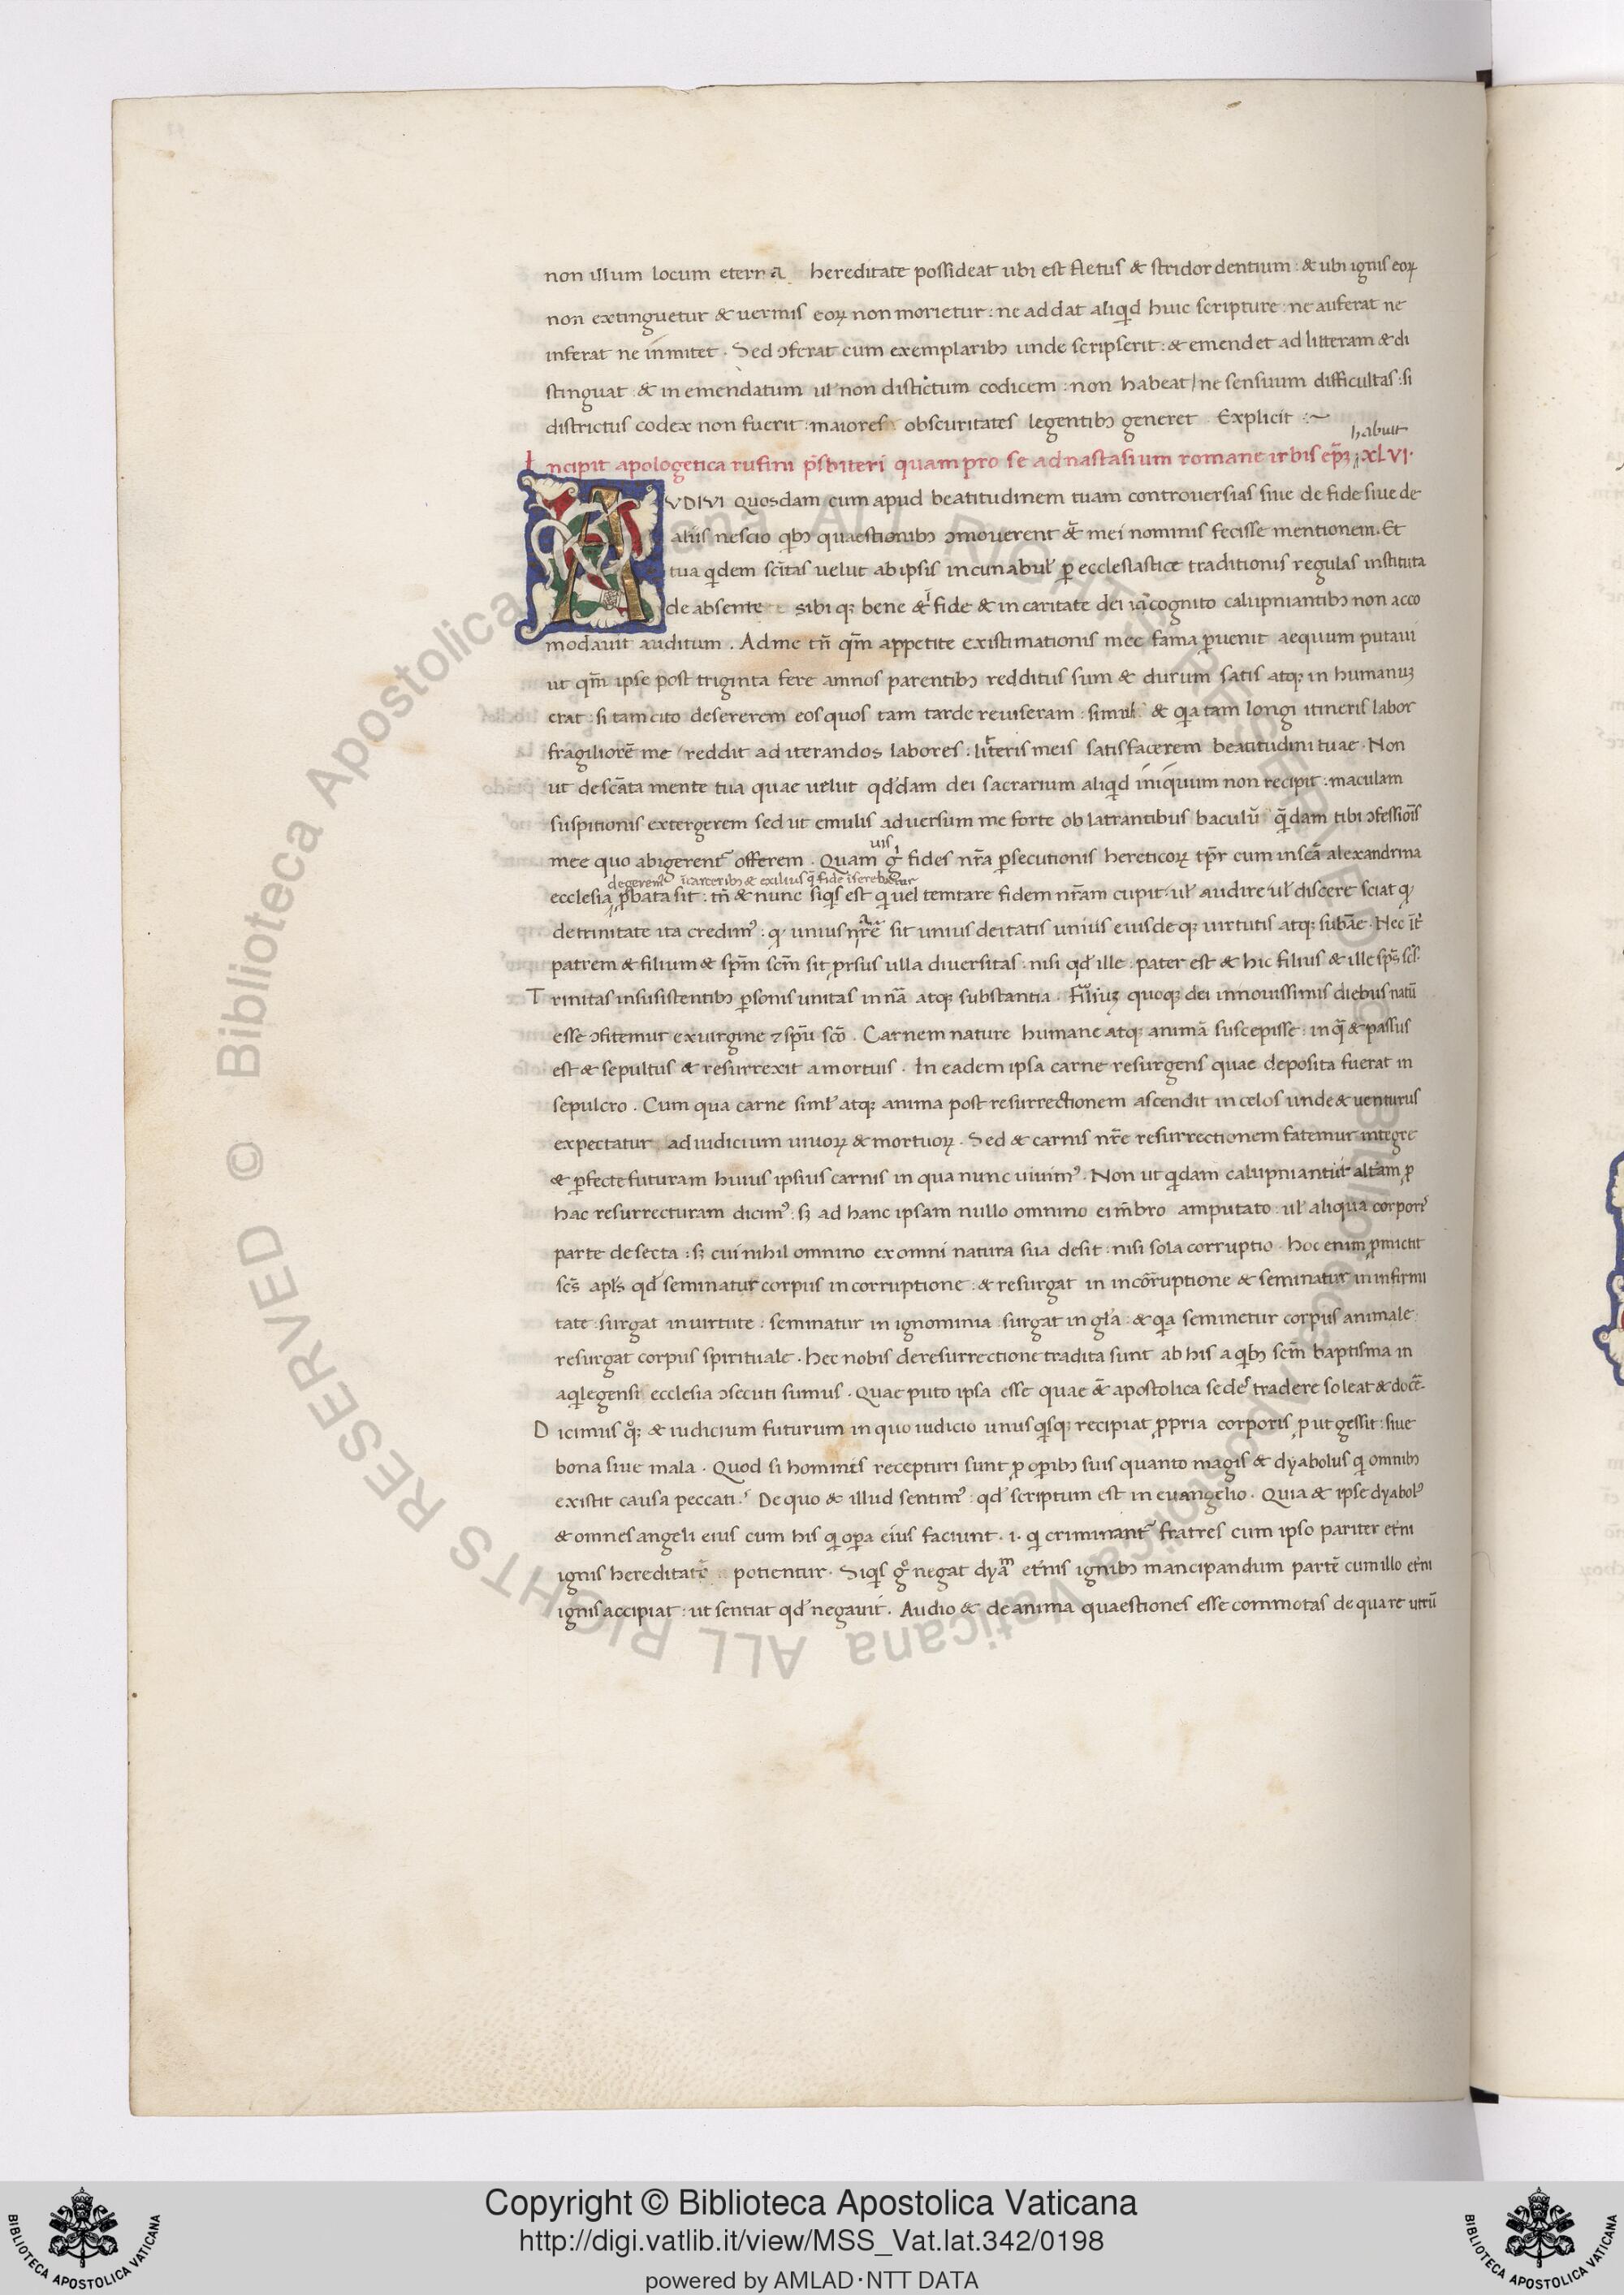 non illum locum eterna hereditate possideat ubi est fletus & stridor dentium : & ubi ignis eoꝝ
non extinguetur & uermis eoꝝ non morietur : ne addat aliqd huic scripture : ne auferat ne
inferat ne inmitet . Sed ɔferat cum exemplaribꝫ unde scripserit : & emendet ad litteram & di
stinguat & in emendatum ul' non distictum codicem : non habeat / ne sensuum difficultas : si
districtus codex non fuerit : maiores obscuritates legentibꝫ generet . Explicit :~
habuit
Incipit apologetica rufini p̄sbiteri quam pro se ad nastasium romane irbis ep̄ꝫ ; XLVI ·
AVDIVI quosdam cum apud beatitudinem tuam controuersias siue de fide siue de
aliis nescio qbꝫ quaestionibꝫ ɔmouerent &̄ mei nominis fecisse mentionem . Et
tua qdem sc̄itas uelut ab ipsis incunabul' ꝑ ecclesiastice traditionis regulas instituta
de absente sibi qꝫ bene & i fide & in caritate dei cognito calupniantibꝫ non acco
modauit auditum . Ad me tn̄ qm̄ appetite existimationis mee fama ꝑuenit aequum putaui
ut qm̄ ipse post triginta fere annos parentibꝫ redditus sum & durum satis atqꝫ in humanuꝫ
erat : si tam cito desererem eos quos tam tarde reuiseram : simul & qa tam longi itineris labor
fragiliorē me reddit ad iterandos labores : litteris meis satisfacerem beatitudini tuae . Non
ut de scāta mente tua quae uelut qd'dam dei sacrarium aliqd iniquum non recipit : maculam
suspitionis extergerem sed ut emulis aduersum me forte oblatrantibus baculū q̄dam tibi ɔfessiōis
mee quo abigerent̄ offerem . Quam uis g fides nr̄a ꝑsecutionis hereticoꝝ tp̄r cum in scā alexandrina
degerem icarceribꝫ & exiliis q̄ fide iserebatur
ecclesia ꝓbata sit : tn̄ & nunc siqs est q uel temtare fidem nr̄am cupit . ul' audire ul' discere sciat q
de trinitate ita credimꝰ : q unius nr̄e sit unius deitatis unius eiusdeqꝫ uirtutis atqꝫ subāe . Nec īt'
patrem & filium & spm̄ scm̄ sit ꝓrsus ulla diuersitas . nisi qd' ille . pater est & hic filius & ille sps̄ scs̄ .
Trinitas insusistentibꝫ ꝑsonis unitas in nā atqꝫ substantia . Filiuꝫ quoqꝫ dei in nouissimis diebus natū
esse ɔfitemur ex uirgine ⁊ spū scō . Carnem nature humane atqꝫ animā suscepisse : in q̄ & passus
est & sepultus & resurrexit a mortuis . In eadem ipsa carne resurgens quae deposita fuerat in
sepulcro . Cum qua carne siml' atqꝫ anima post resurrectionem ascendit in celos unde & uenturus
expectatur ad iudicium uiuoꝝ & mortuoꝝ . Sed & carnis nr̄e resurrectionem fatemur integre
& ꝑfecte futuram huius ipsius carnis in qua nunc uiuimꝰ . Non ut qdam calupniantur altam ꝓ
hac resurrecturam dicimꝰ : sꝫ ad hanc ipsam nullo omnino ei mēbro amputato : ul' aliqua corporꝭ
parte desecta : sꝫ cui nihil omnino ex omni natura sua desit : nisi sola corruptio . hoc enim ꝓmictit
scs̄ apl's qd' seminatur corpus in corruptione : & resurgat in incōrruptione & seminatur in infirmi
tate : surgat in uirtute : seminatur in ignominia : surgat in gl'a : & qa seminetur corpus animale
resurgat corpus spirituale . hec nobis de resurrectione tradita sunt ab his a qbꝫ scm̄ baptisma in
aqlegensi ecclesia ɔsecuti sumus . Quae puto ipsa esse quae &̄ apostolica sedes tradere soleat & docē .
Dicimus qꝫ & iudicium futurum in quo iudicio unus qsqꝫ recipiat ꝓpria corporis ꝓut gessit : siue
bona siue mala . Quod si homines recepturi sunt ꝓ opibꝫ suis quanto magis & dyabolus q omnibꝫ
existit causa peccati . De quo & illud sentimꝰ : qd' scriptum est in euangelio . Quia & ipse dyabolꝰ
& omnes angeli eius cum his q opa eius faciunt . i . q criminant̄ fratres cum ipso pariter et'ni
ignis hereditatē potientur . Siqs g° negat dyam et'nis ignibꝫ mancipandum partē cum illo et'ni
ignis accipiat : ut sentiat qd' negauit . Audio & de anima quaestiones esse commotas de qua re utrū
© Biblioteca Apostolica Vaticana ALL RIGHTS RESERVED
© Biblioteca Apostolica Vaticana ALL RIGHTS RESERVED
Copyright © Biblioteca Apostolica Vaticana
http://digi.vatlib.it/view/MSS_Vat.lat.342/0198
powered by AMLAD·NTT DATA
BIBLIOTECA APOSTOLICA VATICANA
BIBLIOTECA APOSTOLICA VATICANA